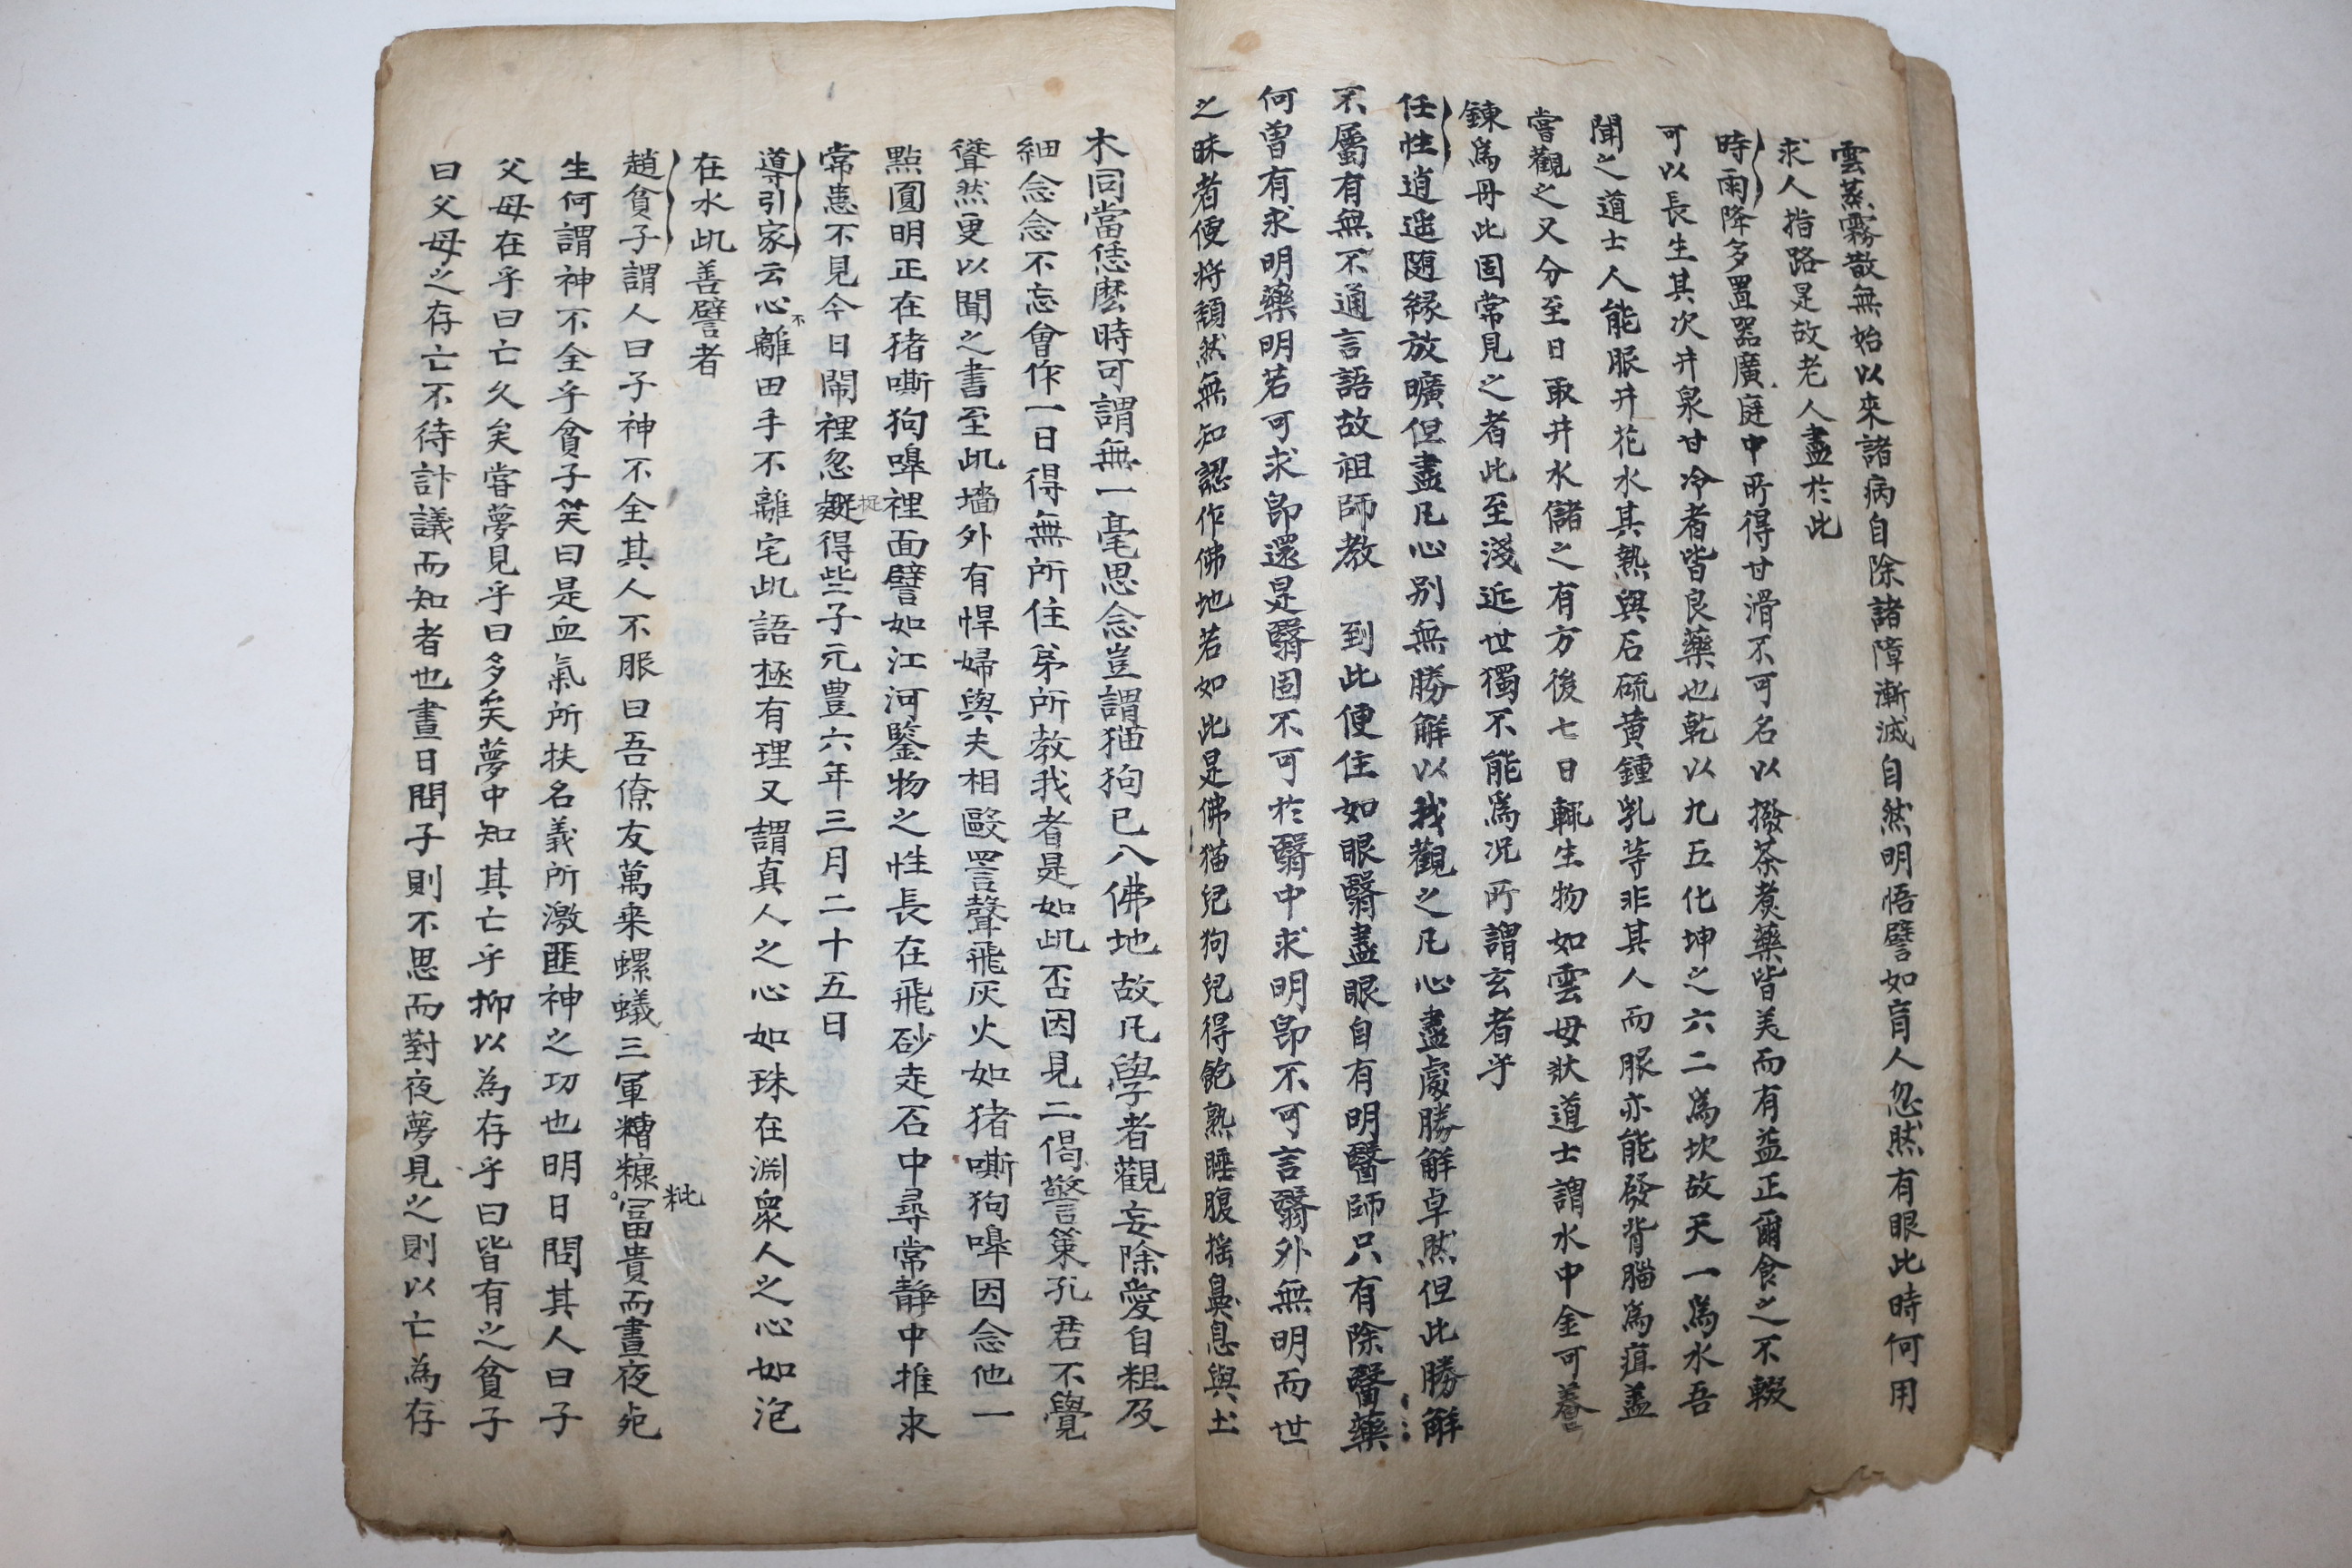 雲蒸霧散無始以來諸病自除諸障漸滅自然明悟譬如盲人忽然有眼此時何用
求人指路是故老人盡於此
時雨降多置器廣庭中所得甘滑不可名以撥茶煮藥皆美而有益正爾食之不輟
可以長生其次井泉甘冷者皆良藥也乾以九五化坤之六二爲坎故天一爲水吾
聞之道士人能服井花水其熱與石硫黃鍾乳等非其人而服亦能發背腦爲疽盖
嘗觀之又分至日取井水儲之有方後七日輒生物如雲母狀道士謂水中金可養
鍊爲丹此固常見之者此至淺近世獨不能爲况所謂玄者乎
任性逍遥随緣放曠但盡凡心别無勝解以我觀之凡心盡處勝解卓然但此勝解
不屬有無不通言語故祖師教 到此便住如眼翳盡眼自有明醫師只有除翳藥
何曾有求明藥明若可求即還是翳固不可於翳中求明即不可言翳外無明而世
之昧者便將頹然無知認作佛地若如此是佛猫兒狗兒得飽熟睡腹揺鼻息與土
木同當恁麽時可謂無一毫思念豈謂猫狗已入佛地故凡學者觀妄除愛自粗及
細念念不忘會作一日得無所住弟所教我者是如此否因見二偈警策孔君不覺
聳然更以聞之書至此墻外有悍婦與夫相毆詈聲飛灰火如猪嘶狗嘷因念他一
點圓明正在猪嘶狗嘷裡面譬如江河鑒物之性長在飛砂走石中尋常静中推求
常患不見今日閙裡忽捉得些子元豊六年三月二十五日
導引家云心不離田手不離宅此語極有理又謂真人之心如珠在淵衆人之心如泡
在水此善譬者
趙貧子謂人曰子神不全其人不服曰吾僚友萬乘螻蟻三軍糟糠粃富貴而晝夜死
生何謂神不全乎貧子笑曰是血氣所扶名義所激匪神之功也明日問其人曰子
父母在乎曰亡久矣嘗夢見乎曰多矣夢中知其亡乎抑以為存乎曰皆有之貧子
曰父母之存亡不待計議而知者也晝日問子則不思而對夜夢見之則以亡為存